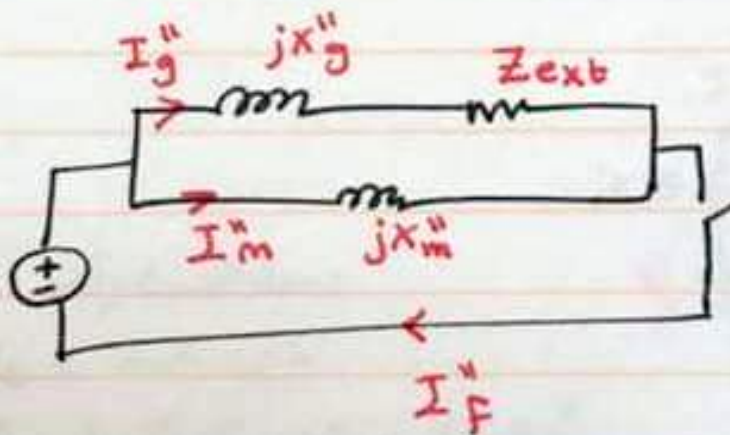 I"g jX"g Zext
I"m jX"m
+
-
I"F